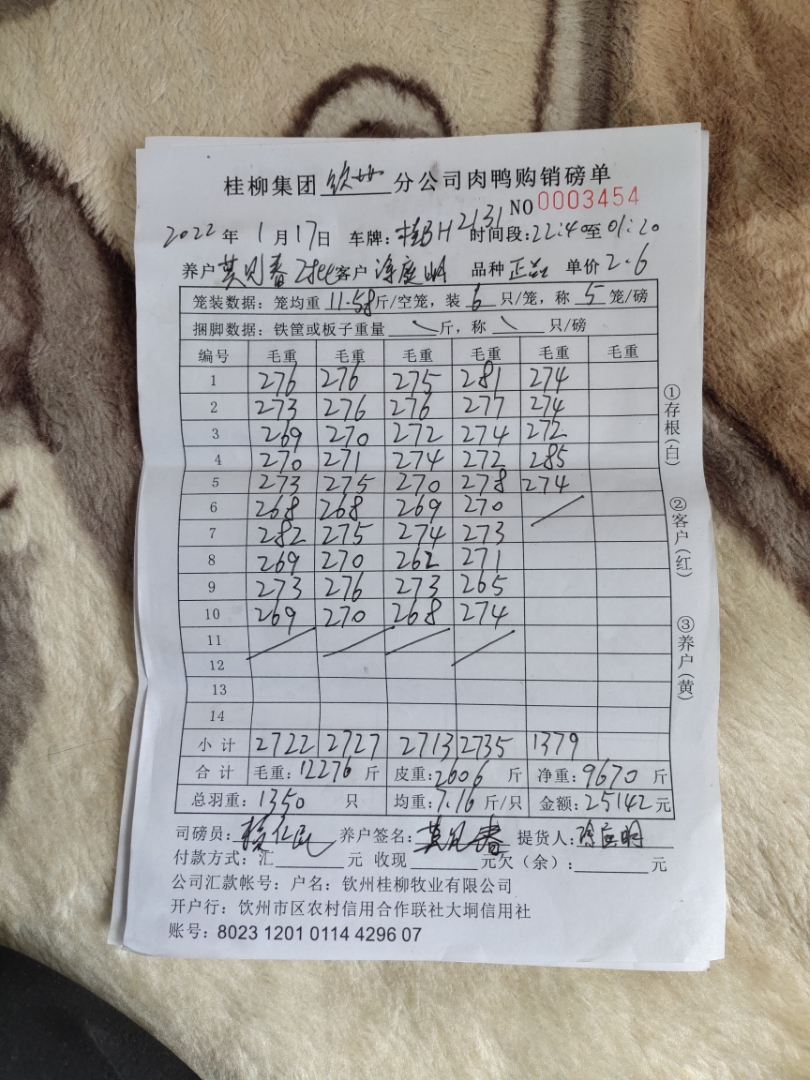 桂柳集团 钦州 分公司肉鸭购销磅单
NO 0003454
2022 年 1 月 17 日 车牌: 桂BH2131 时间段: 22:40 至 01:20
养户 莫见春 客户 庭明 品种 正品 单价 2.6
笼装数据: 笼均重 11.58 斤/空笼, 装 6 只/笼, 称 5 笼/磅
捆脚数据: 铁筐或板子重量 斤, 称 只/磅
编号 毛重 毛重 毛重 毛重 毛重 毛重
1 276 276 275 281 274
2 273 276 276 277 274
3 269 270 272 274 272
4 270 271 274 272 285
5 273 275 270 278 274
6 268 268 269 270
7 282 275 274 273
8 269 270 262 271
9 273 276 273 265
10 269 270 268 274
11
12
13
14
小计 2722 2727 2713 2735 1379
合计 毛重: 12276 斤 皮重: 2606 斤 净重: 9670 斤
总羽重: 1350 只 均重: 7.16 斤/只 金额: 25142 元
司磅员: 养户签名: 莫见春 提货人:
付款方式: 汇 元 收现 元欠(余): 元
公司汇款帐号: 户名: 钦州桂柳牧业有限公司
开户行: 钦州市区农村信用合作联社大垌信用社
账号: 8023 1201 0114 4296 07
①存根(白)
②客户(红)
③养户(黄)